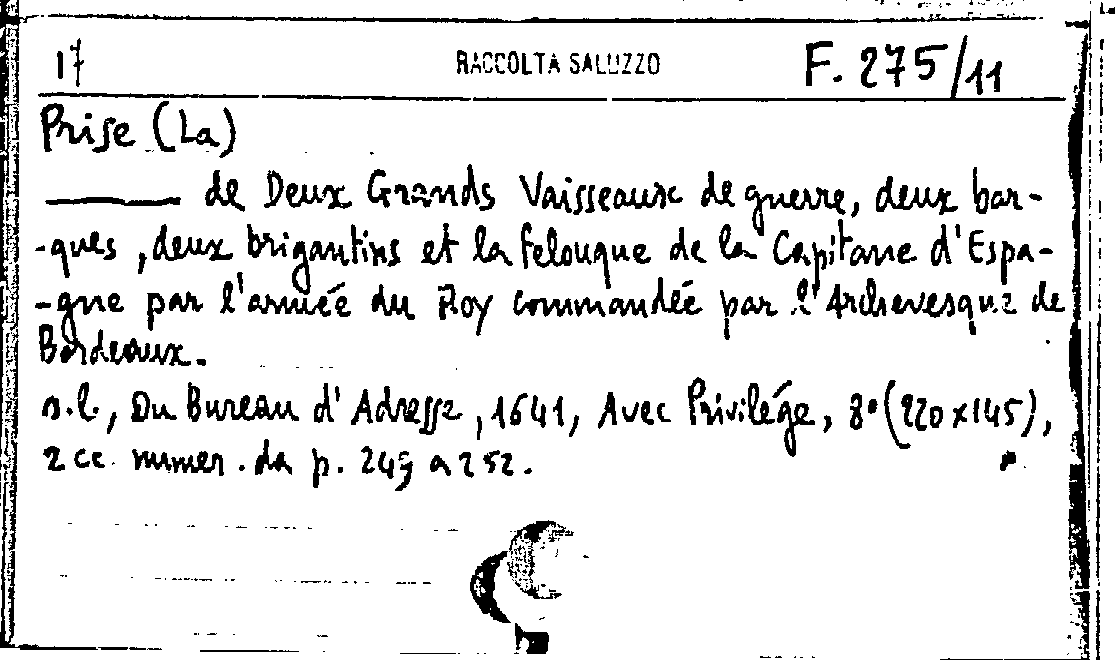 17 RACCOLTA SALUZZO F. 275/11
Prise (La)
——— de Deux Grands Vaisseaux de guerre, deux bar-
-ques, deux brigantins et la felouque de la Capitane d'Espa-
-gne par l'armée du Roy commandée par l'Archevesque de
Bordeaux.
s.l., Du Bureau d'Adresse, 1641, Avec Privilége, 8°(220x145),
2 cc. numer. da p. 249 a 252.